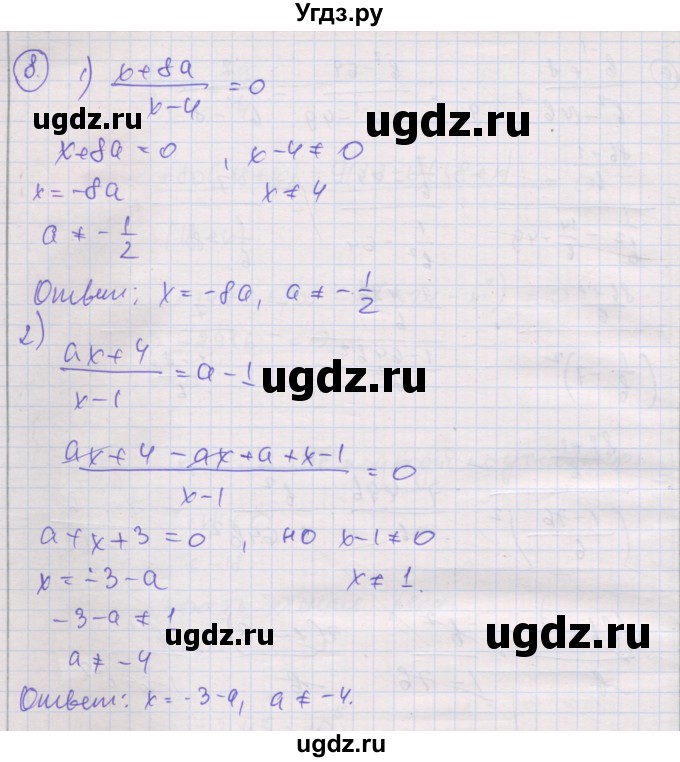 Угдз.ру
8. 1) x+8a / x-4 = 0
ugdz.ru
ugdz.ru
x+8a=0 , x-4≠0
x=-8a x≠4
a≠-1/2
Ответ: x=-8a, a≠-1/2
2)
ax+4 / x-1 = a-1
ugdz.ru
ax+4-ax+a+x-1 / x-1 = 0
a+x+3=0 , но x-1≠0
x=-3-a x≠1.
-3-a≠1
ugdz.ru
ugdz.ru
a≠-4
Ответ: x=-3-a, a≠-4.
ugdz.ru